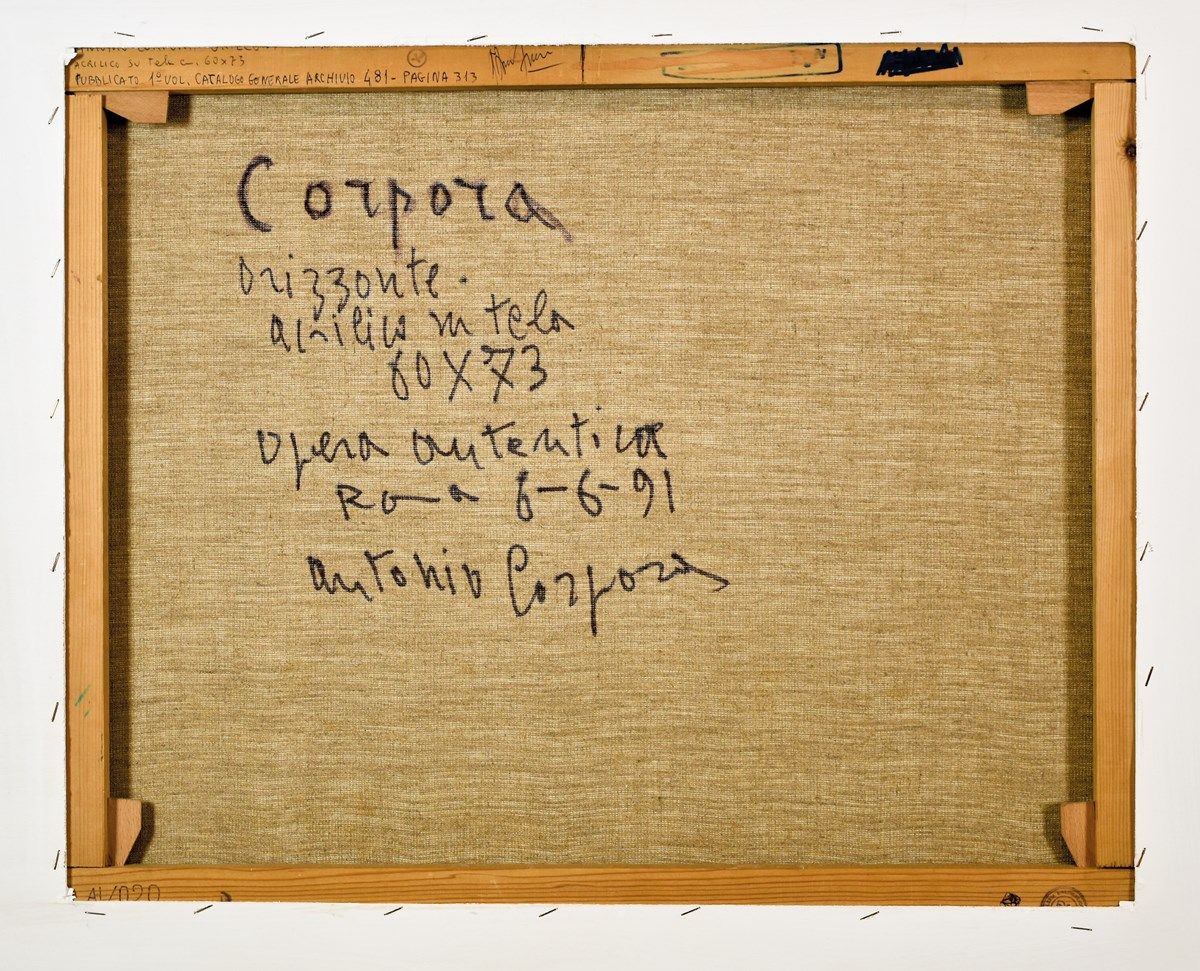 ACRILICO SU Tela cm. 60x73
PUBBLICATO 1º VOL. CATALOGO GENERALE ARCHIVIO 481 - PAGINA 313
Corpora
Orizzonte.
acrilico su tela
60X73
opera autentica
Roma 6-6-91
antonio Corpora